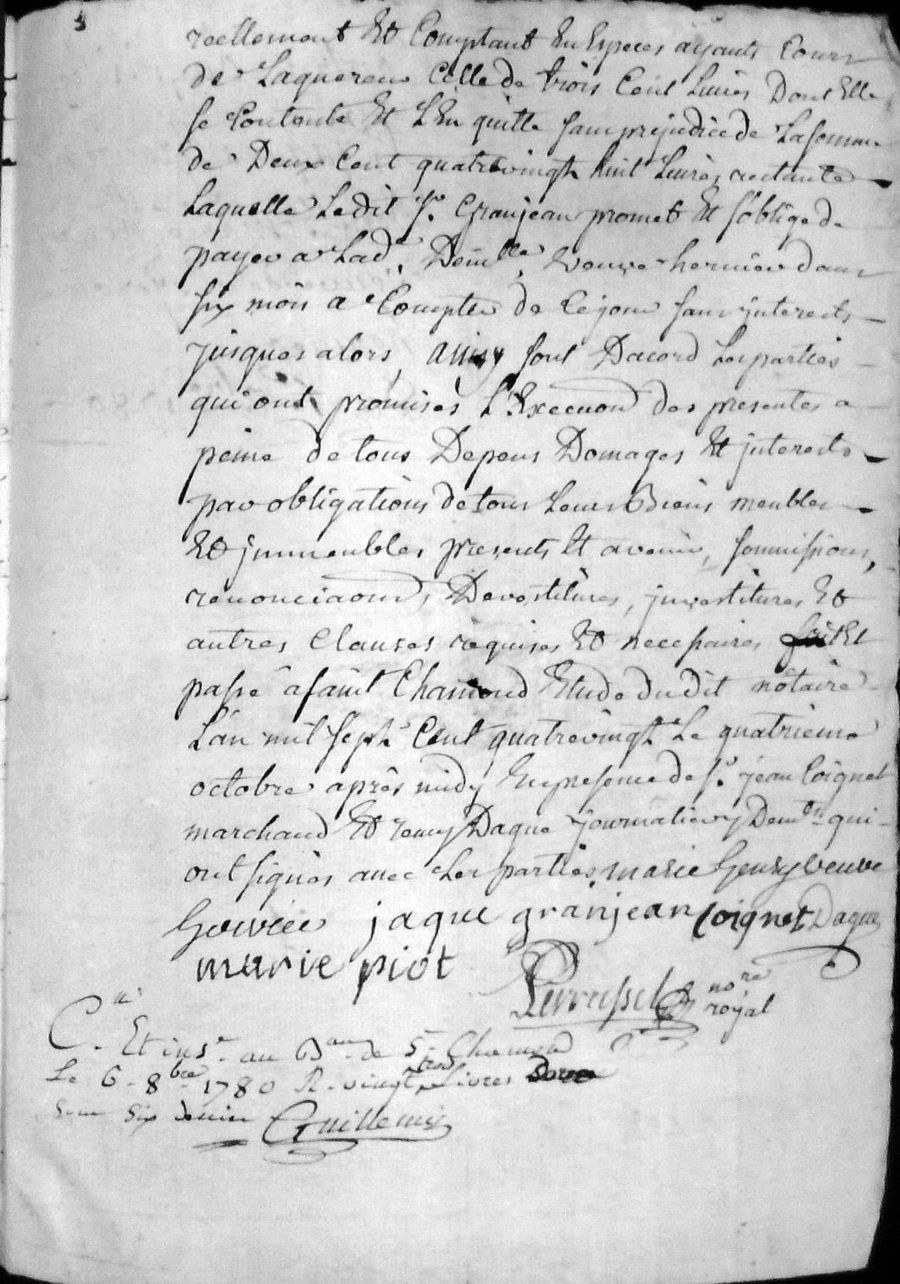 3
reellement Et Comptant En Especes ayants Cours
de Laquereur Celle de trois Cent Livres Dont Elle
se Contente Et L'En quitte sans prejudice de La somme
de Deux Cent quatrevingt huit Livres restante
Laquelle Ledit Sr. Granjean promet Et s'oblige de
payer a Lade. Demlle. veuve hervier dans
six mois a Compter de Ce jour sans interests
jusques alors, ainsy sont D'acord Les parties
qui ont promises L'Execuon des presentes a
peine de tous Depens Domages Et interests
par obligations de tous Leurs Biens meubles
Et immeubles presents Et avenir, soumissions,
renonciaons, Devestitures, investitures Et
autres Clauses requises Et necessaires fait Et
passé a saint Chamond Etude dudit notaire
L'an mil sept Cent quatrevingt Le quatrieme
octobre après midy En presence de Sr. jean Coignet
marchand Et remy Daque journalier Demts. qui
ont signés avec Les parties marie veuve
jaque granjean Coignet Daque
marie piot
nore
royal
Clé. Et insé. au Bau. de St Chamond
Le 6 8bre 1780 R. vingt trois Livres
sous six denier Guillemin